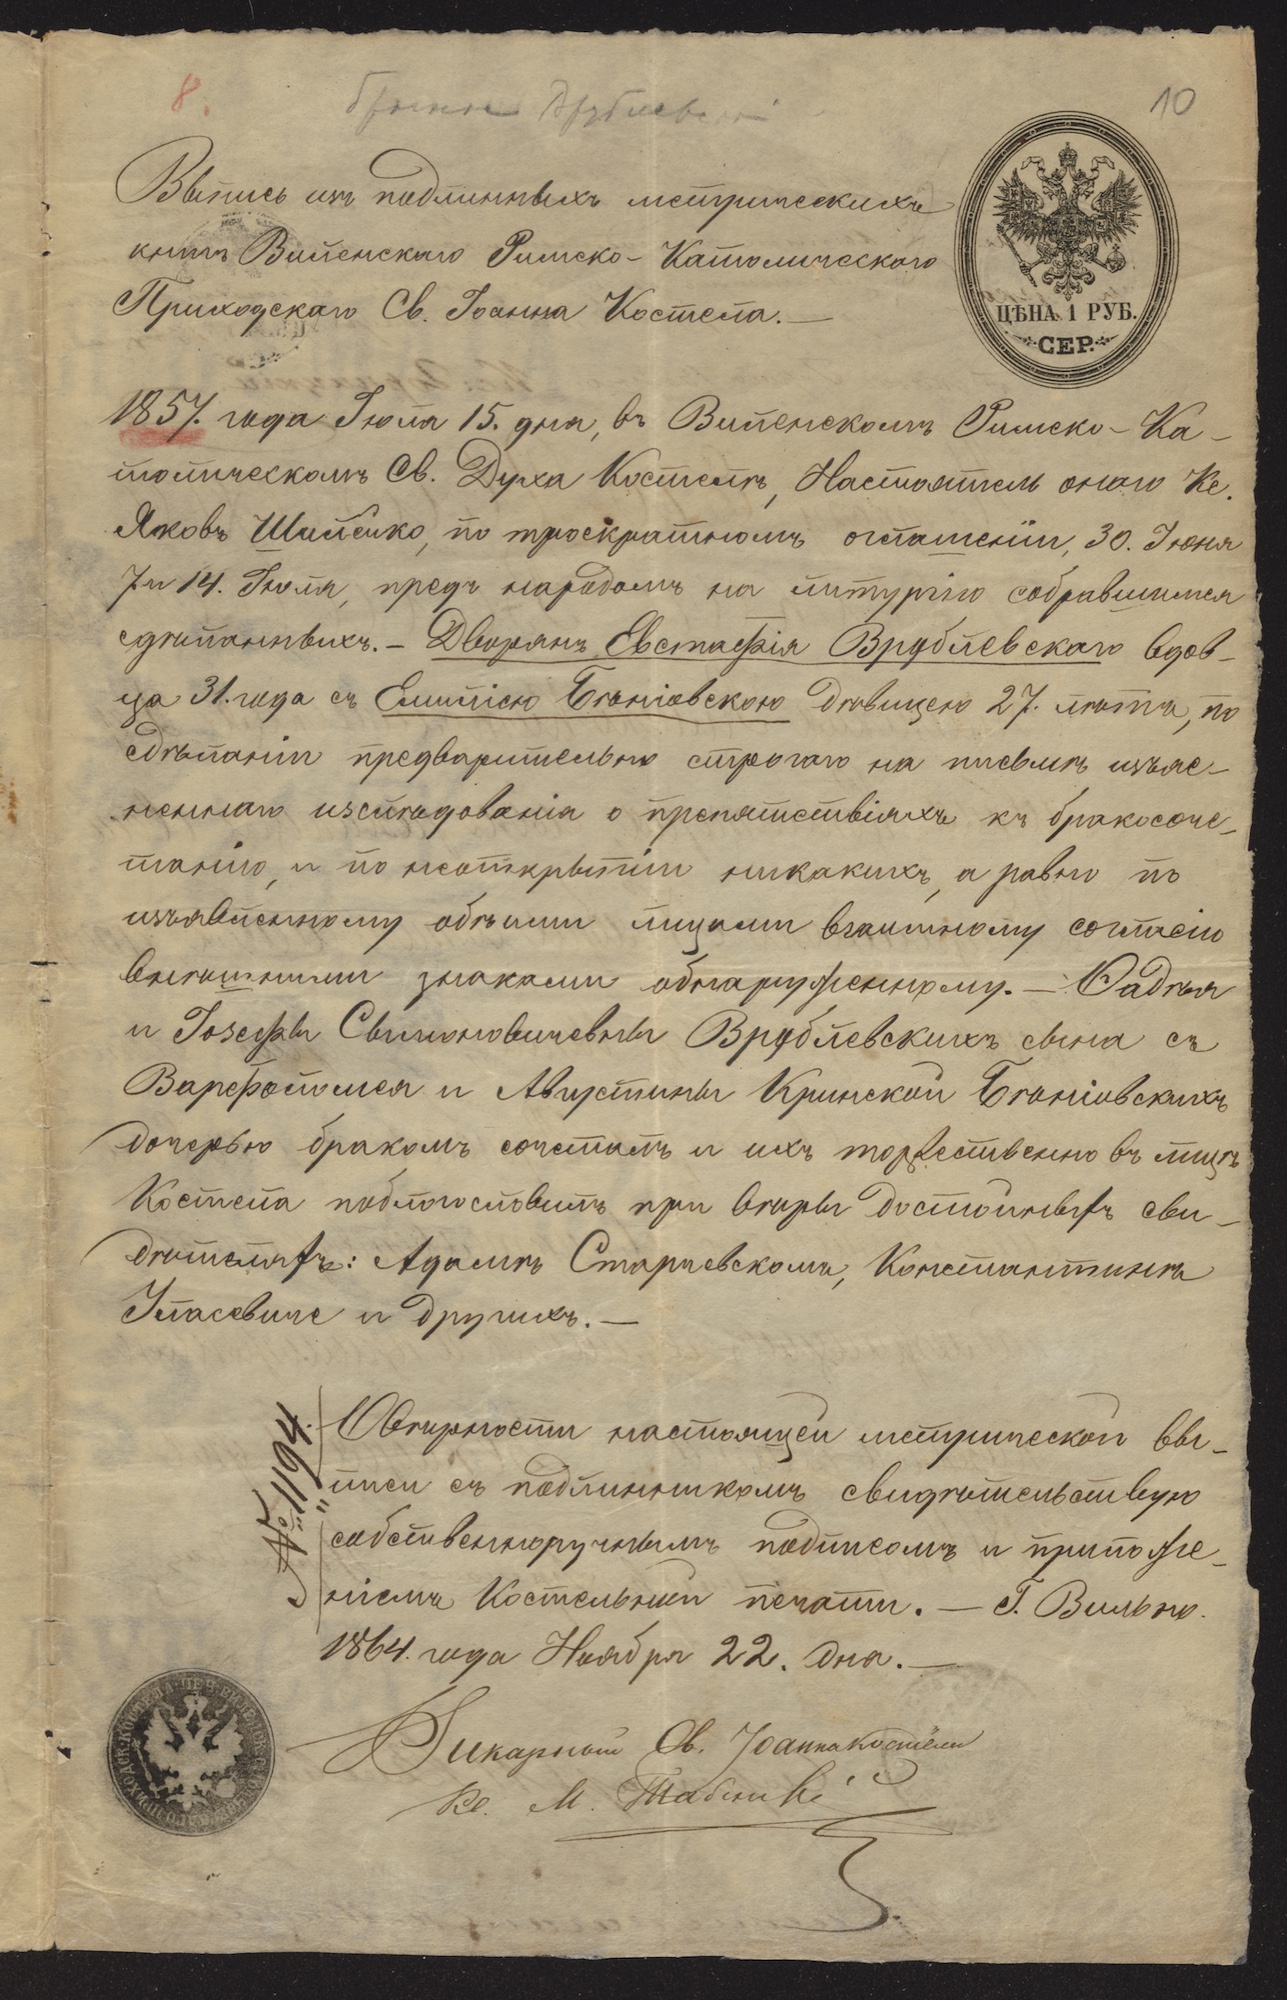 8.
10
Выпись изъ подлинныхъ метрическихъ
книгъ Виленскаго Римско-Католическаго
Приходскаго Св. Іоанна Костела.—
ЦѢНА 1 РУБ.
СЕР.
1857. года Іюля 15. дня, въ Виленскомъ Римско-Ка-
толическомъ Св. Духа Костелѣ, Настоятель онаго Кс.
Яковъ Шилейко, по троекратномъ оглашеніи, 30. Іюня
7 и 14. Іюля, предъ народомъ на литургію собравшимся
сдѣланныхъ.— Дворянъ Евстафія Врублевскаго вдов-
ца 31. года съ Емиліею Бѣніовскою дѣвицею 27. лѣтъ, по
сдѣланіи предварительно строгаго на письмѣ изъяс-
неннаго изслѣдованія о препятствіяхъ къ бракосоче-
танію, и по неоткрытіи никакихъ, а равно по
изъявленному обѣими лицами взаимному согласію
внѣшними знаками обнаруженному.— Фадѣя
и Іозефы Симоновичевны Врублевскихъ сына съ
Варфоломея и Августины Кринской Бѣніовскихъ
дочерью бракомъ сочеталъ и ихъ торжественно въ лицѣ
Костела поблагословилъ при вѣры достойныхъ сви-
дѣтеляхъ: Адамѣ Старчевскомъ, Константинѣ
Уласевиче и другихъ.—
№ 1194.
О вѣрности настоящей метрической вы-
писи съ подлинникомъ свидѣтельствую
собственноручнымъ подписомъ и приложе-
ніемъ Костельной печати.— Г. Вильно.
1864. года Ноября 22. дня.—
Викарный Св. Іоанна Костела
Кс. М.